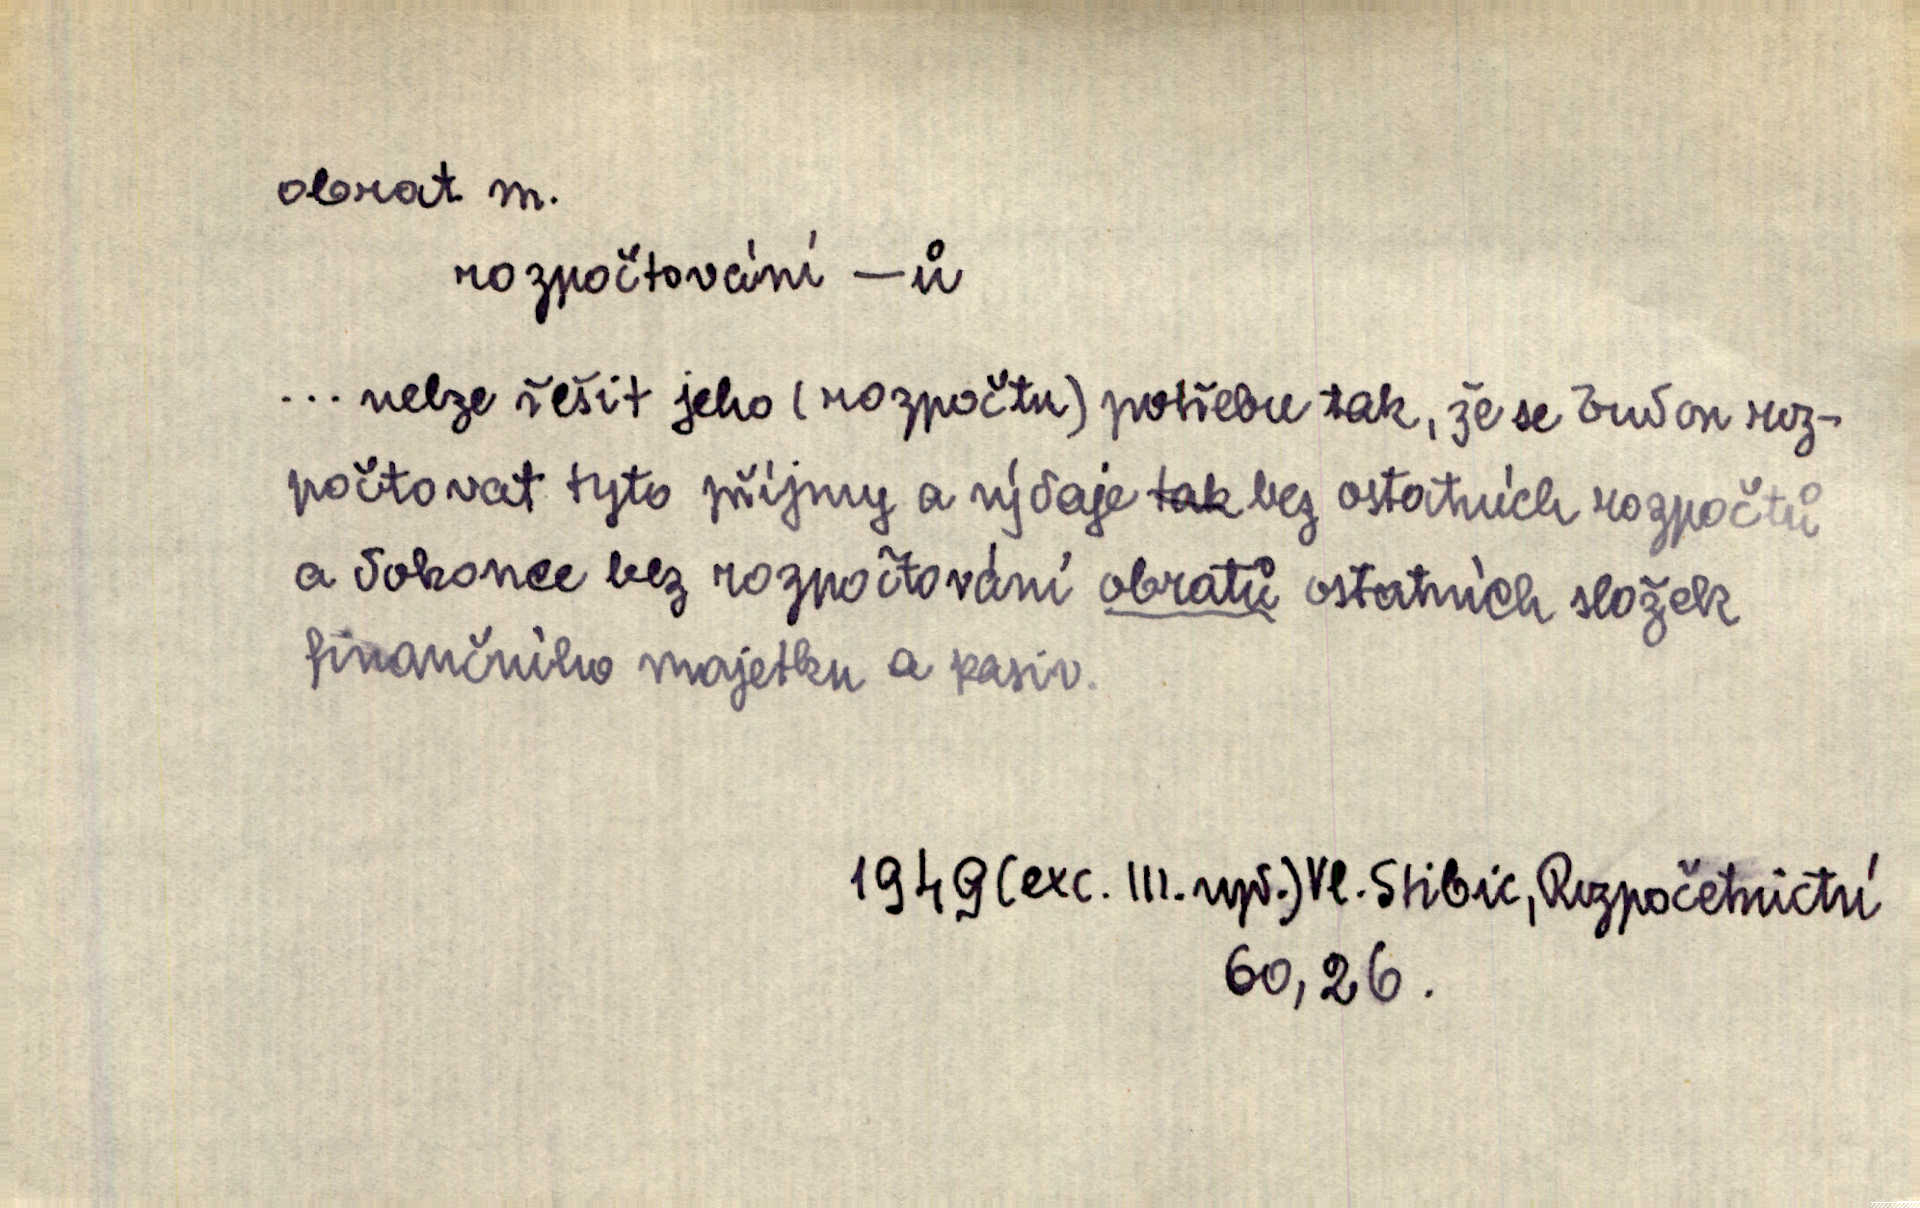 obrat m.
rozpočtování —ů
... nelze řešit jeho (rozpočtu) potřebu tak, že se budou roz-
počtovat tyto příjmy a výdaje tak bez ostatních rozpočtů
a dokonce bez rozpočtování obratů ostatních složek
finančního majetku a pasiv.
1949 (exc. III. vyd.) Vl. Stibic, Rozpočetnictví
60, 26.